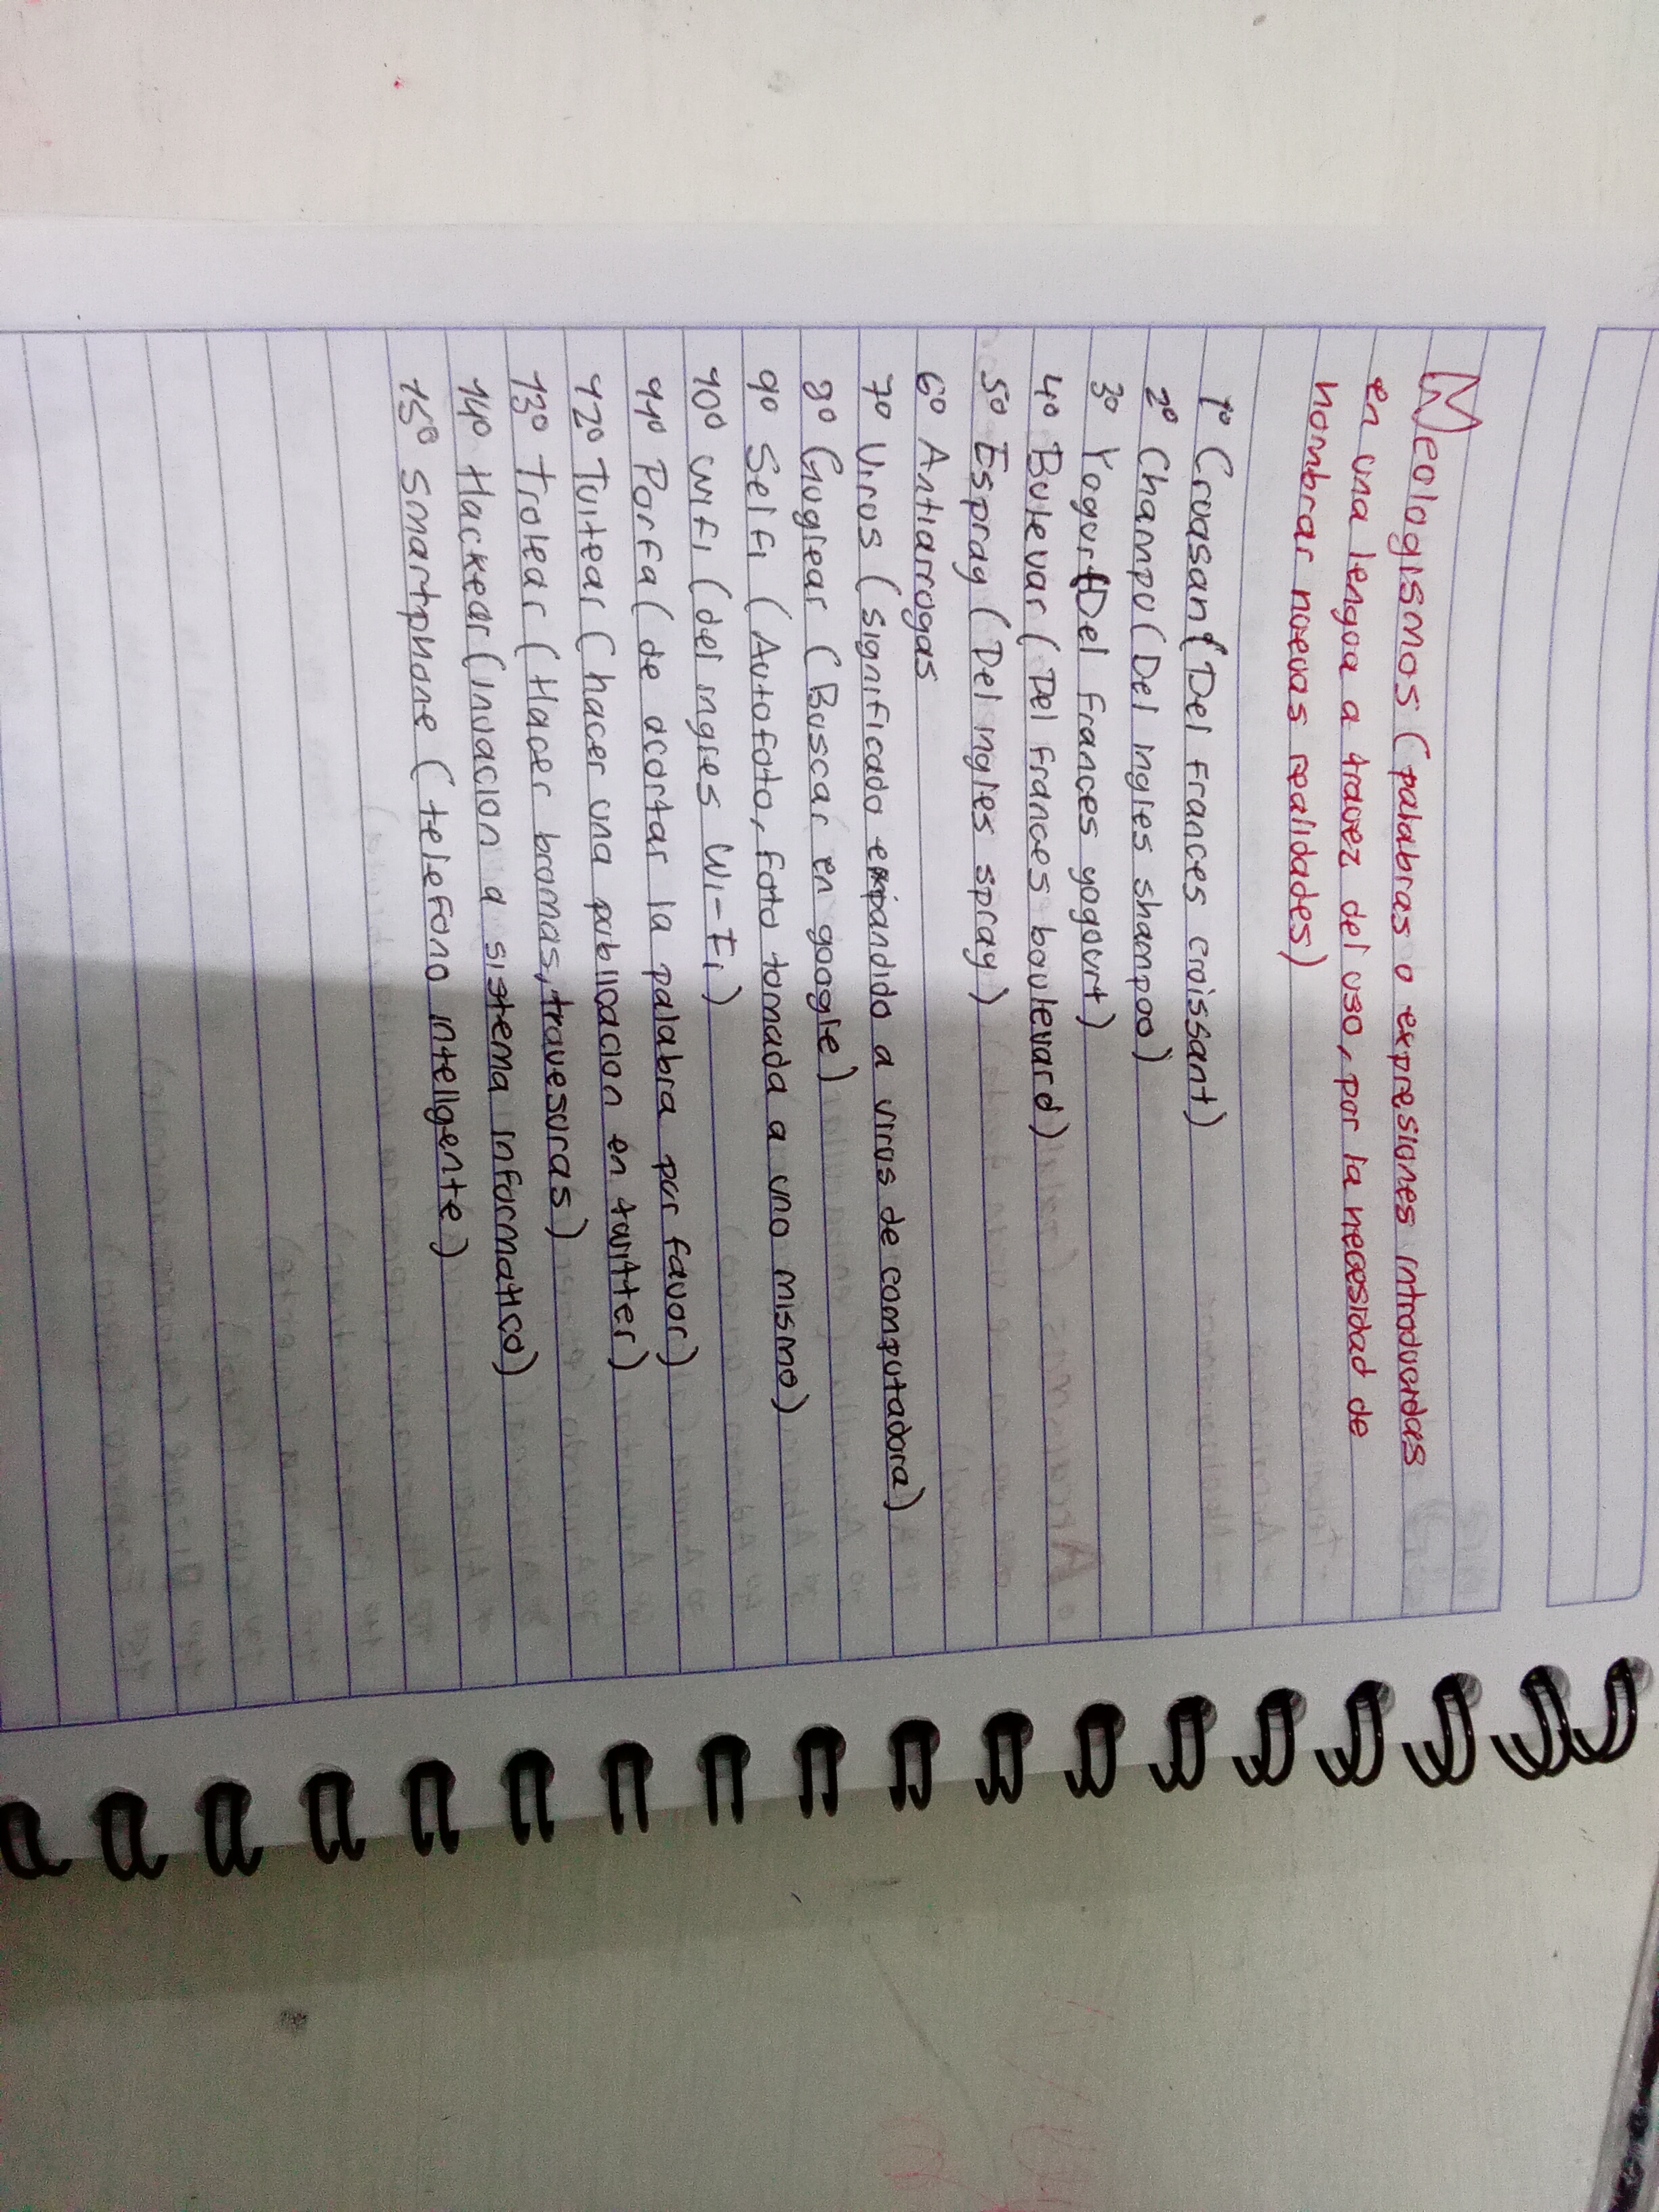 Neologismos (palabras o expresiones introducidas
en una lengua a travez del uso, por la necesidad de
nombrar nuevas realidades)
1º Cruasan (Del frances croissant)
2º Champu (Del ingles shampoo)
3º Yogur (Del frances yogourt)
4º Bulevar (Del frances boulevard)
5º Espray (Del ingles spray)
6º Antiarrogas
7º Virus (significado expandido a virus de computadora)
8º Guglear (Buscar en google)
9º Selfi (Autofoto, foto tomada a uno mismo)
10º wifi (del ingles Wi-Fi)
11º Porfa (de acortar la palabra por favor)
12º Tuitear (hacer una publicacion en twitter)
13º Trolear (Hacer bromas, travesuras)
14º Hackear (invacion a sistema informatico)
15º Smartphone (telefono inteligente)